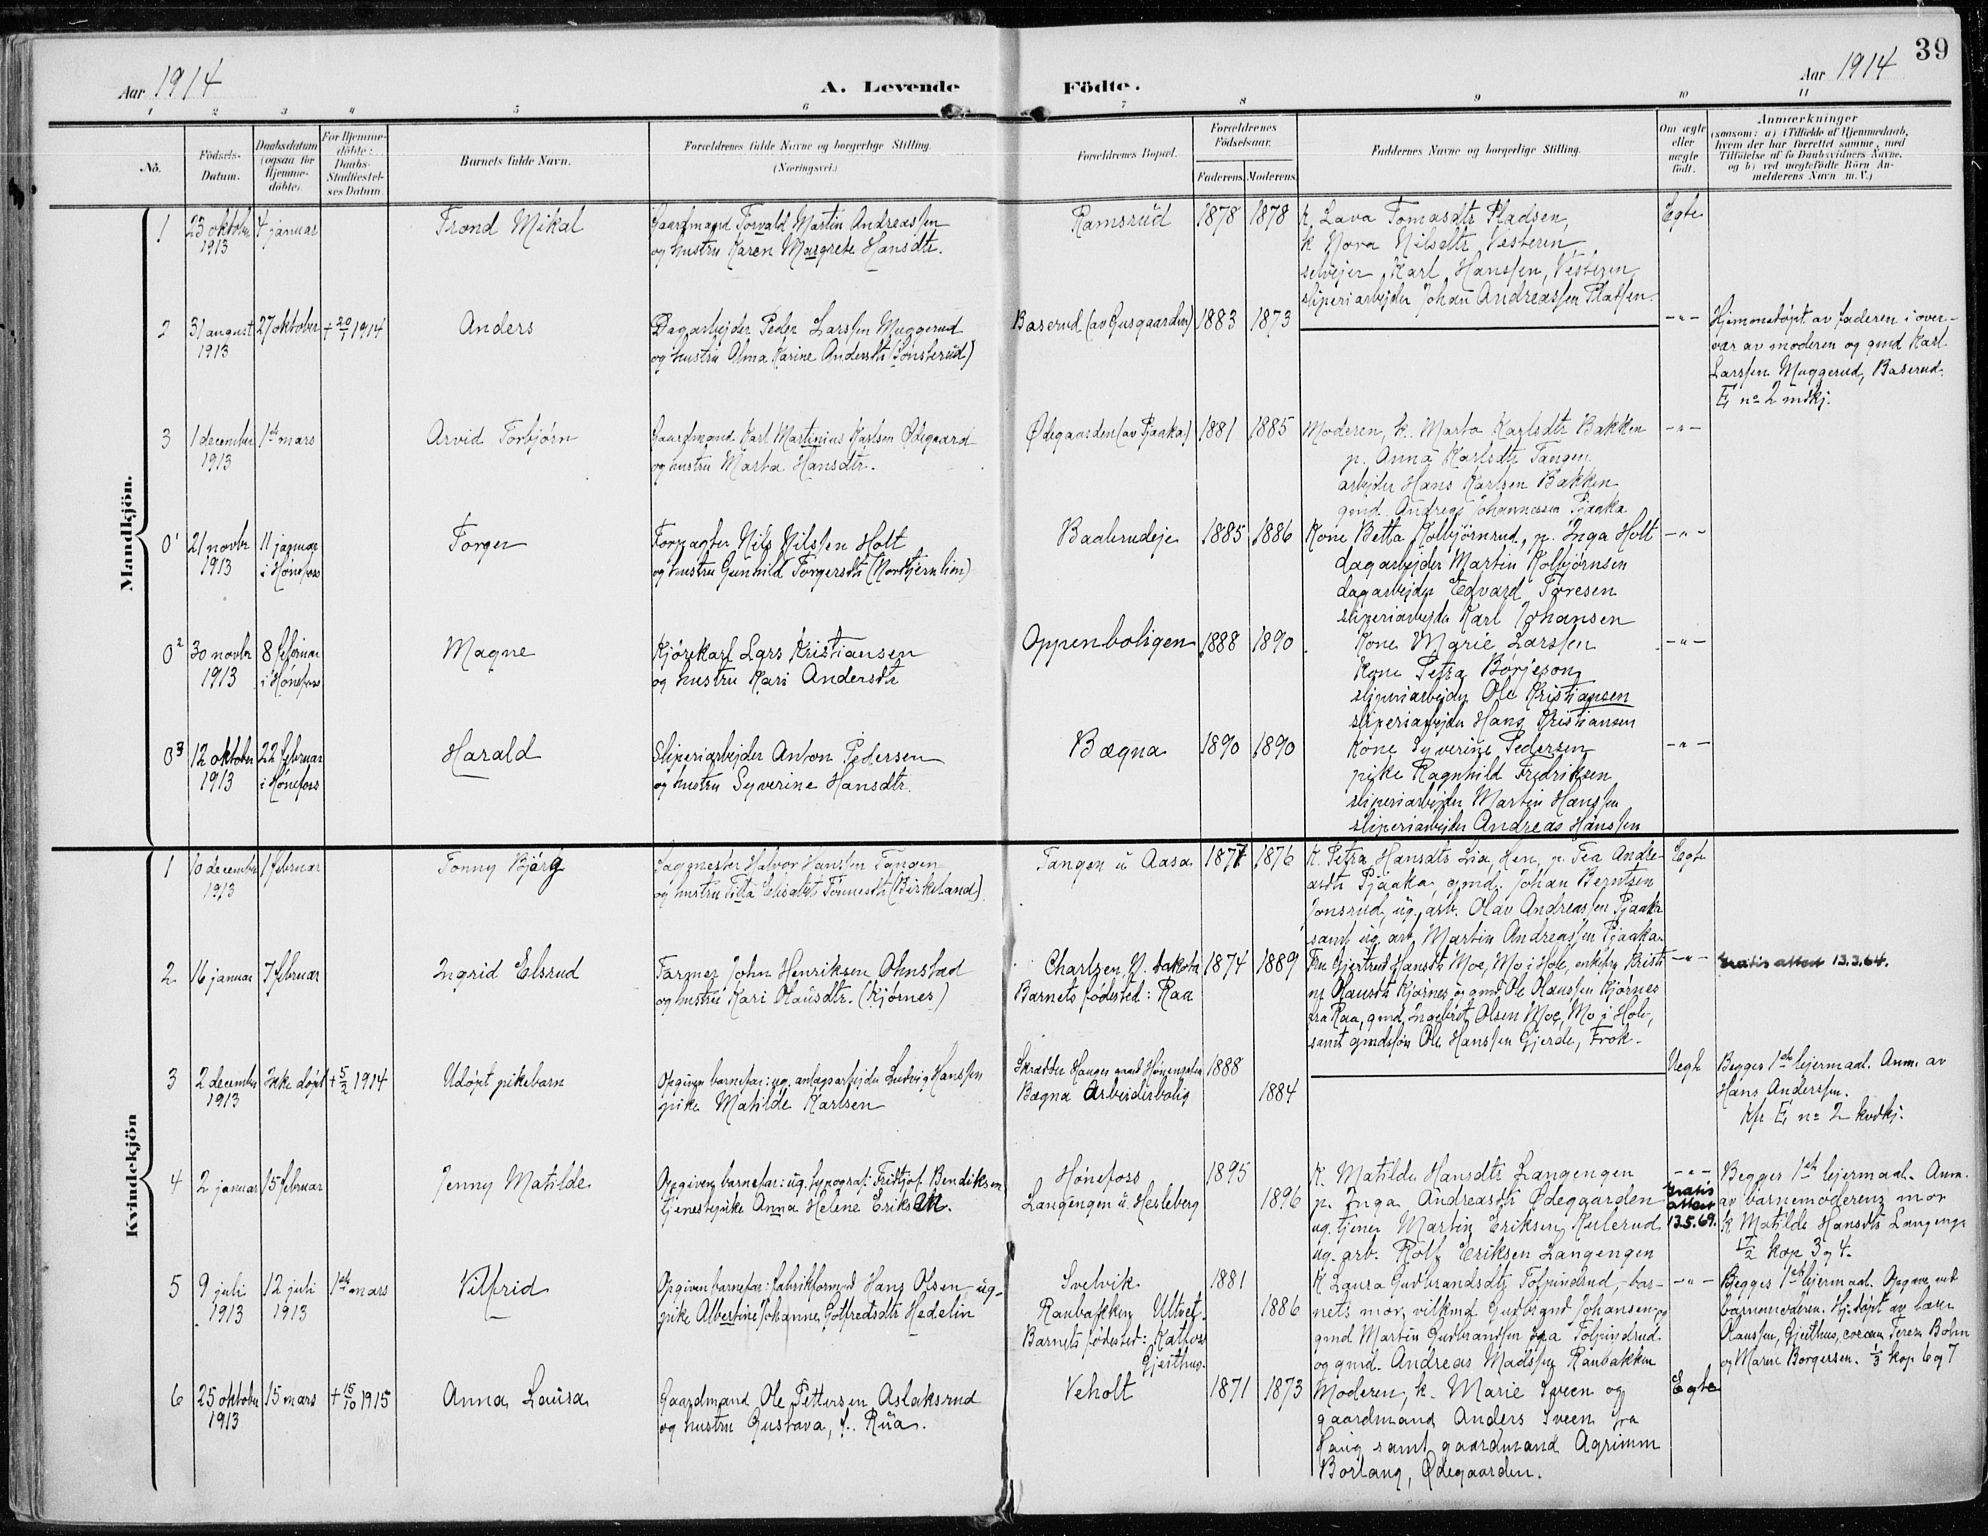 39
Aar 1914
A. Levende Födte.
Aar 1914
1 2 3 4 5 6 7 8 9 10 11
No.
Födsels-Datum.
Daabsdatum (ogsaa for Hjemme-döbte).
For Hjemme-döbte: Daabs-Stadfæstel-ses Datum
Barnets fulde Navn.
Forældrenes fulde Navne og borgerlige Stilling.
(Næringsvei.)
Forældrenes Bopæl.
Forældrenes Födselsaar.
Faderens. Moderens.
Faddernes Navne og borgerlige Stilling.
Om ægte eller uægte födt.
Anmærkninger
(saasom: a) i Tilfælde af Hjemmedaab, hvem der har forrettet samme, med Tilföielse af to Daabsvidners Navne, og b) ved uægtefödte Börn An-melderens Navn m. V.)
Mandkjön.
1 23 oktober 1913 4 januar Trond Mikal
Gaardmand Torvald Martin Andreassen
og hustru Karen Margrete Hansdtr.
Ramsrud 1878 1878
k. Lava Tomasdtr Pladsen,
k Nora Nilsdtr Vesteren,
selveier Karl Hanssen, Vesteren
sliperiarbejder Johan Andreassen Pladsen.
Egte
2 31 august 1913 27 oktober + 20/1 1914 Anders
Dagarbejder Peder Larssen Muggerud
og hustru Alma Karine Andersdtr (Tønsterud)
Baserud (av Gusgaarden) 1883 1873
-"-
Hjemmedøpt av faderen i over-
vær av moderen og gmd Karl
Larssen Muggerud, Baserud.
E, no 2 mdkj.
3 1 december 1913 1st mars Arvid Torbjørn
Gaardmand Karl Martinius Karlsen Ødegaard
og hustru Marta Hansdtr.
Ødegaarden (av Pjaaka) 1881 1885
Moderen, k. Marta Karlsdtr Bakken
p. Anna Karlsdtr Tangen
arbejder Hans Karlsen Bakken
gmd. Andreas Johannessen Pjaaka
-"-
0¹ 21 novbr 1913 11 januar i Hønefoss Torger
Forpagter Nils Nilssen Holt
og hustru Gunhild Torgersdtr (Nortjernlien)
Baalerudeje 1885 1886
Kone Betta Kolbjørnrud, p. Inga Holt
dagarbejder Martin Kolbjørnsen
dagarbejder Edvard Toresen
sliperiarbejder Karl Johansen
-"-
0² 30 novbr 1913 8 februar i Hønefoss Magne
Kjørekarl Lars Kristiansen
og hustru Kari Andersdtr
Oppenboligen 1888 1890
Kone Marie Larssen
Kone Petra Børjeson
sliperiarbejder Ole Kristiansen
sliperiarbejder Hans Kristiansen
-"-
0³ 12 oktober 1913 22 februar i Hønefoss Harald
Sliperiarbejder Anton Pedersen
og hustru Syverine Hansdtr.
Bægna 1890 1890
Kone Syverine Pedersen
pike Ragnhild Fredriksen
sliperiarbejder Martin Hanssen
sliperiarbejder Andreas Hanssen
-"-
Kvindekjön
1 10 december 1913 1 februar Tonny Bjørg
Sagmester Halvor Hanssen Tangen
og hustru Titta Elisabet Tønnesdtr (Birkeland).
Tangen u Aasa 1877 1876
K. Petra Hansdtr Lia, Hen, p. Tea Andre-
asdtr Pjaaka, gmd. Johan Berntsen
Jonsrud, ug. arb. Olav Andreassen Pjaaka
samt ug. arb. Martin Andreassen Pjaaka
Egte
2 16 januar 7 februar Ingrid Elsrud
Farmer John Henriksen Ohnstad
og hustru Kari Olausdtr. (Kjørnes)
N. Dakota
Barnets fødested: Raa
1874 1889
Fru Gjertrud Hansdtr Moe, Mo i Hole, enkefru Kristi-
ne Olausdtr Kjørnes og gmd Ole Olaussen Kjørnes
fra Raa, gmd. Ingebret Olsen Moe, Mo i Hole,
samt gmdssøn Ole Hanssen Gjerde, Frok.
-"-
Gratis attest 13.3.64.
3 2 december 1913 Ikke døpt + 5/2 1914 Udøpt pikebarn
Opgiven barnefar: ug. anlægsarbejder Ludvig Hanssen
pike Matilde Karlsen
Bægna Arbeiderbolig
1888 1884
Uegte
Begges 1ste lejermaal. Anm. av
Hans Anderssen.
Kfr E, no 2 kvdkj.
4 2 januar 15 februar Jenny Matilde
Opgiven barnefar: ug. typograf: Fridtjof Bendiksen
tjenestepike Anna Helene Eriksen.
Hønefoss
Langengen u. Hesleberg
1895 1896
K. Matilde Hansdtr Langengen
p. Inga Andreasdtr Ødegaarden
ug. tjener Martin Eriksen Hulerud
ug. arb. Rolf Eriksen Langengen
-"-
Gratis attest 13.5.69.
Begges 1ste lejermaal. Anm.
av barnemoderens mor
k Matilde Hansdtr Langengen
17/2 kap 3 og 4.
5 9 juli 1913 12 juli 1913 1st mars Vilfrid
Opgiven barnefar: fabrikformand Hans Olsen - ug-
pike Albertine Johanne Gotfredsdtr Hedelin
Svelvik
Raubakken Ultvet.
Barnets fødested: Katfos
Gjeithus.
1881 1886
K Laura Gudbrandsdtr Tolpinrud, bar-
nets mor, Gudbrand Johansen og
gmd Martin Gudbrandsen fra Tolpinrud
og gmd. Andreas Madssen Raubakken
-"-
Begges 1ste lejermaal. Opgave ved
barnemoderen. Hj.døpt av lærer
Olaussen, Gjeithus, coram Terese Bohm
og Maren Borgersen. 1/3 kap. 6 og 7
6 25 oktober 1913 15 mars + 15/10 1915 Anna Lovisa
Gaardmand Ole Pettersen Aslaksrud
og hustru Gustava, f. Rua.
Veholt 1871 1873
Moderen, k. Marie Sveen og
gaardmand Anders Sveen fra
Haug samt gaardmand Agrimm
Borlaug, Ødegaarden.
Egte